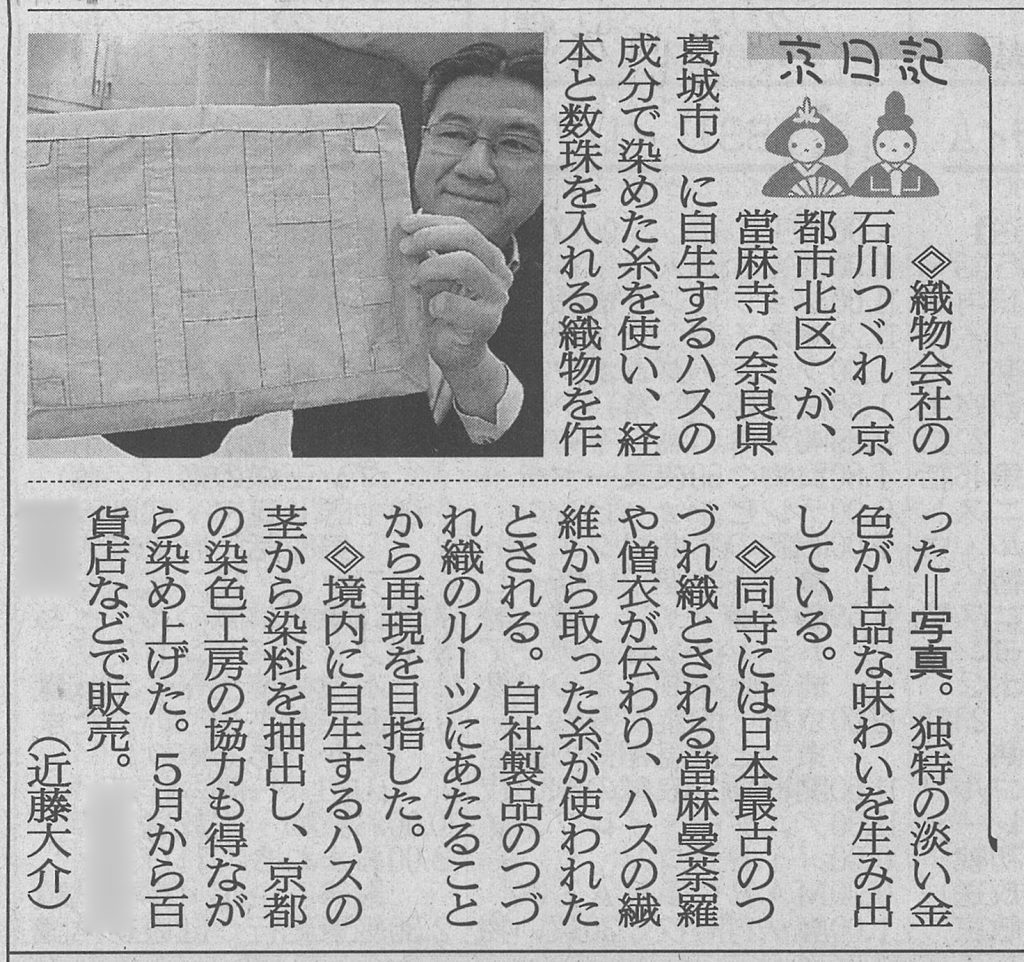 京日記
◇織物会社の
石川つづれ（京
都市北区）が、
當麻寺（奈良県
葛城市）に自生するハスの
成分で染めた糸を使い、経
本と数珠を入れる織物を作
った＝写真。独特の淡い金
色が上品な味わいを生み出
している。
◇同寺には日本最古のつ
づれ織とされる當麻曼荼羅
や僧衣が伝わり、ハスの繊
維から取った糸が使われた
とされる。自社製品のつづ
れ織のルーツにあたること
から再現を目指した。
◇境内に自生するハスの
茎から染料を抽出し、京都
の染色工房の協力も得なが
ら染め上げた。５月から百
貨店などで販売。
（近藤大介）